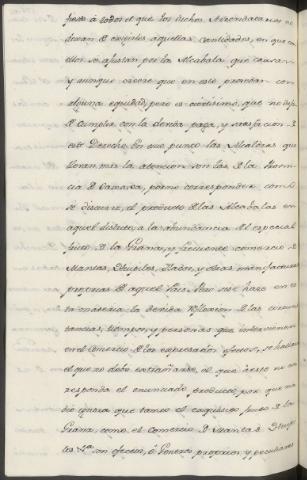 justo á todos el que los dichos Arrendatarios no
dexan de exigirles aquellas cantidades, en que con
ellos se ajustan por la Alcabala que causan
y aunque crehe que en este prorrateo
alguna equidad, pero es certisimo, que no dexan
D cumplir con la devida paga, y satisfaccion D
este Derecho. En cuio punto las Alcabalas que
llevan mi la atencion son las D la Provin-
cia D Oaxaca, por no corresponder como
se discurre, el producto D las Alcabalas en
aquel distrito, a la abundancia D el especial
fruto D la Grana, y frecuente comercio D
Mantas, Huipiles, Jabon, y otras manufacturas
proprias D aquel Pais. Pero si se hace en es-
ta materia la devida reflexion D las circuns-
tancias, tiempos, y personas que intervienen
en el Comercio D los expresados efectos, se hallará
el que no debe extrañarse, el que á esto no co-
rresponda el enunciado producto, por que na-
die ignora que tanto el exquisito fruto D la
Grana, como el comercio D Mantas D Huipi-
les &a. son efectos, ó Generos proprios, y peculiares